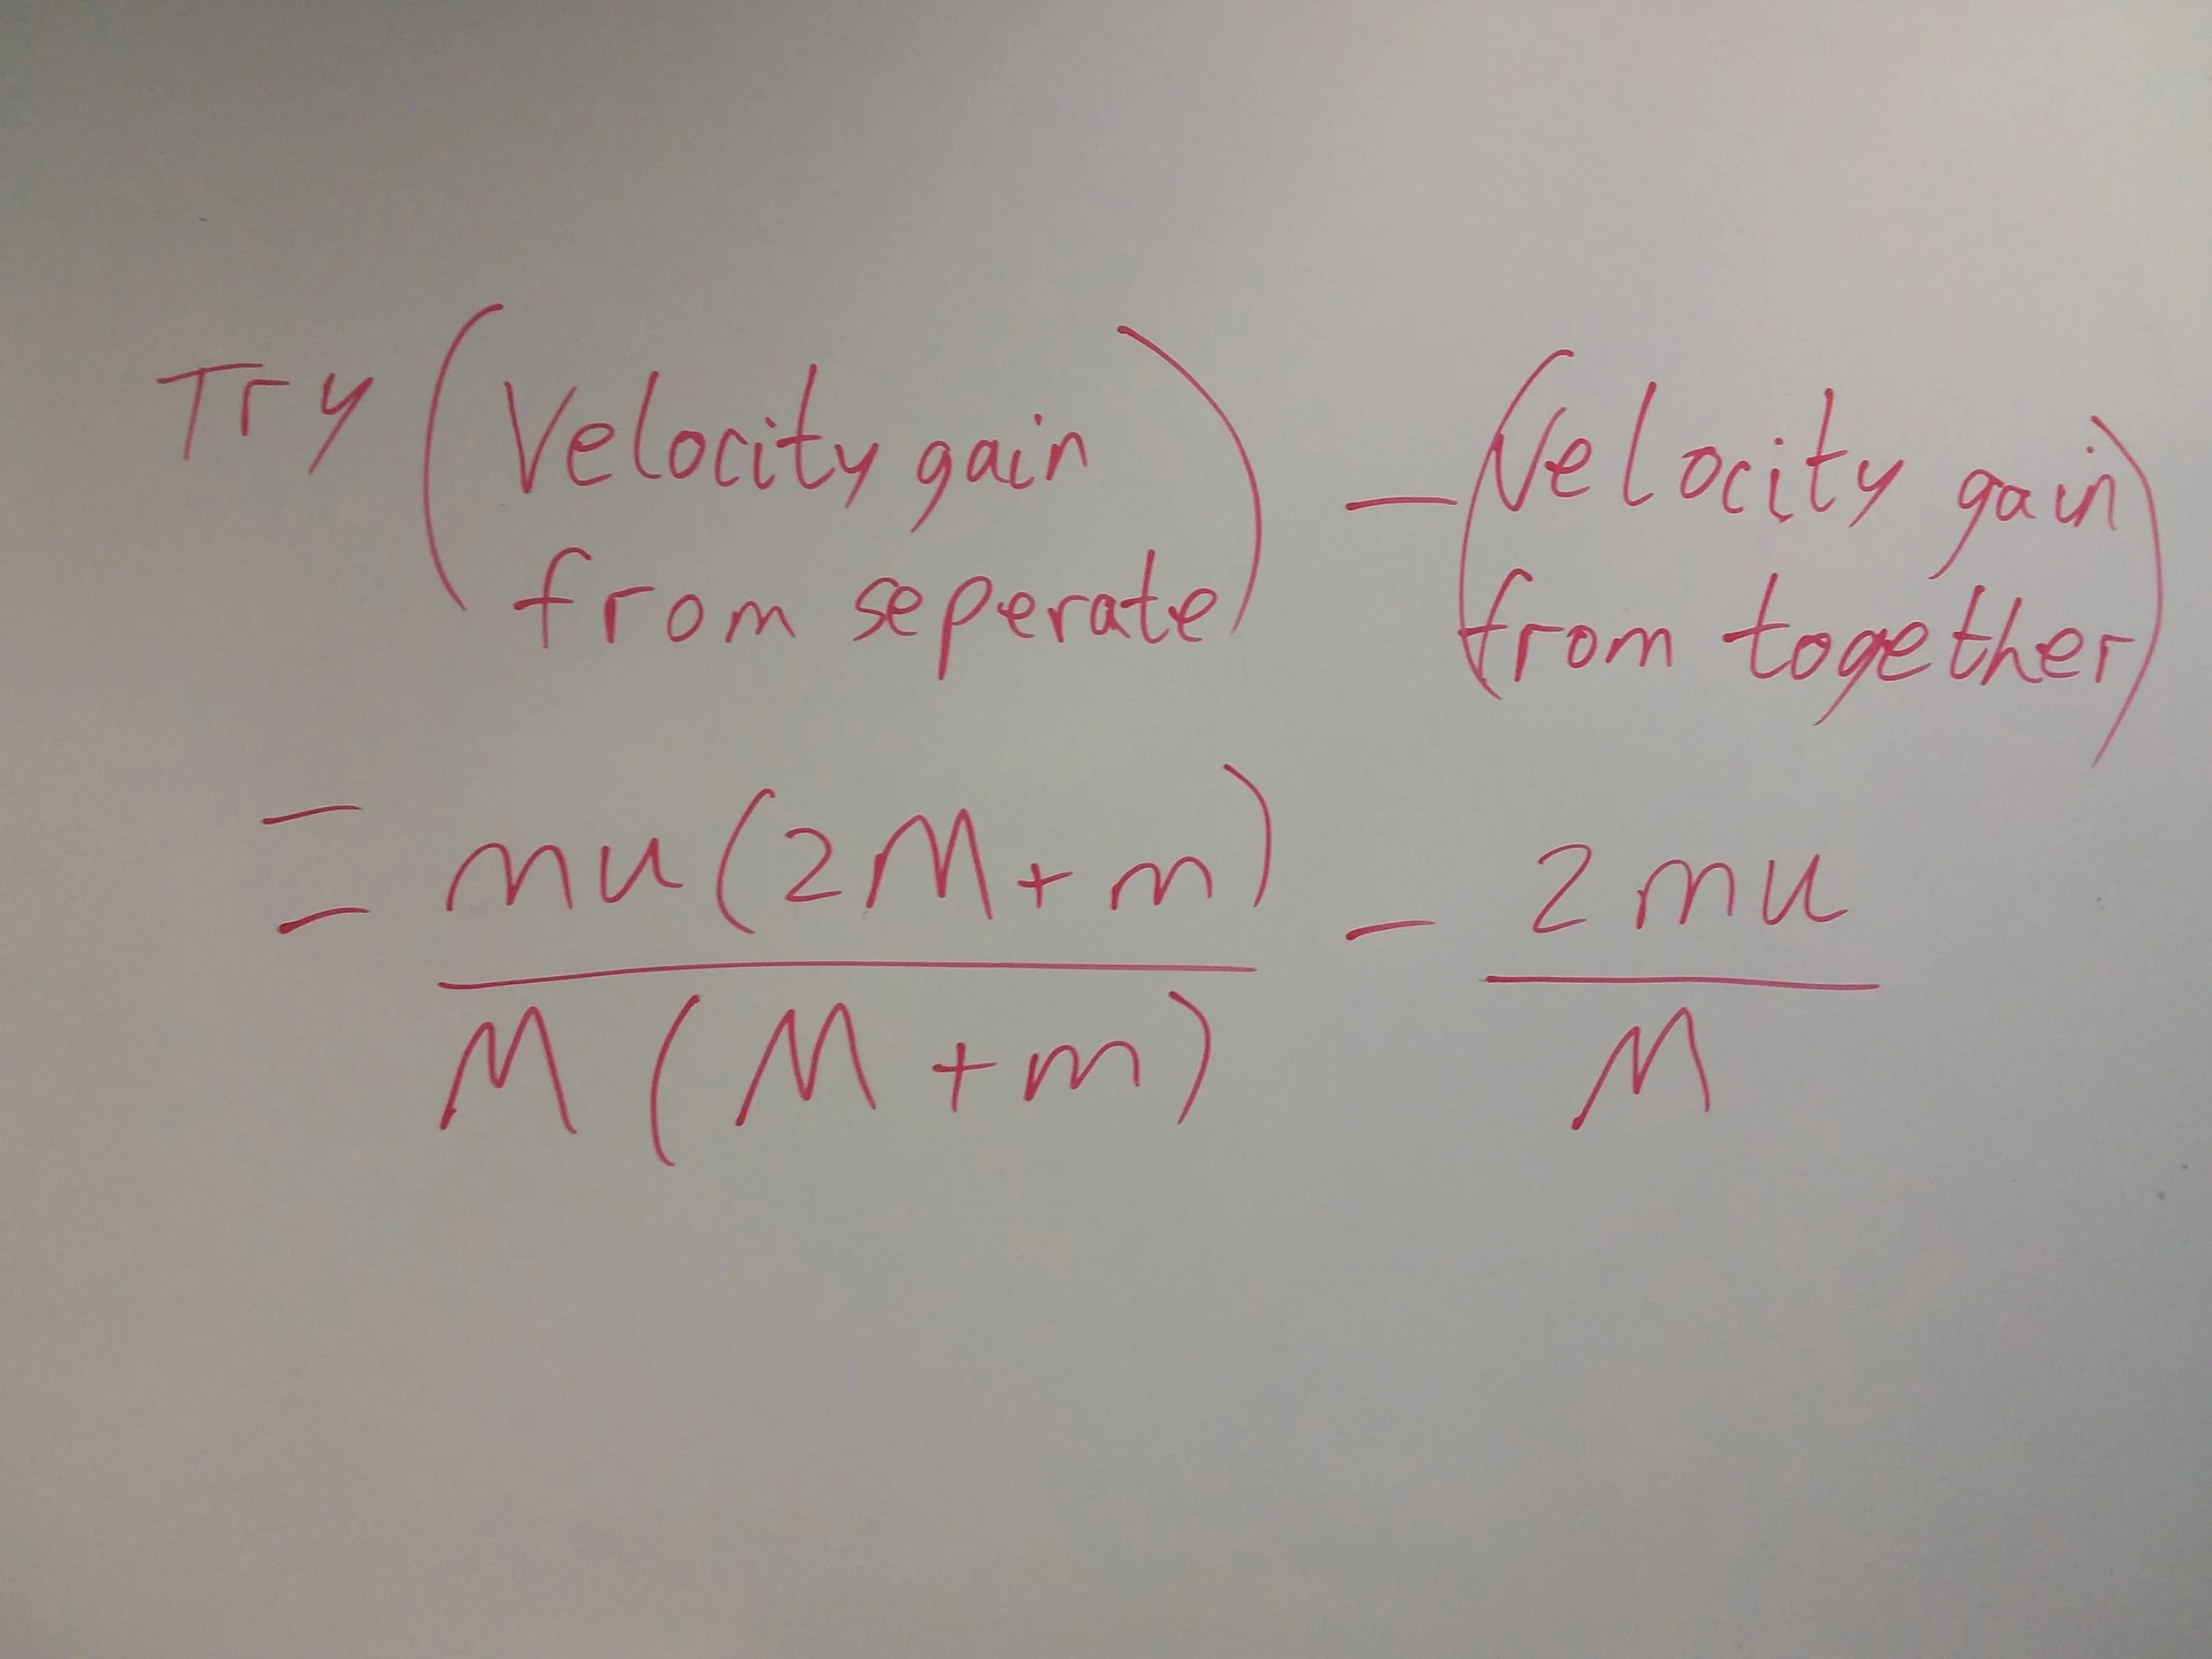 Try (Velocity gain from seperate) - (Velocity gain from together)
= mu(2M+m)/M(M+m) - 2mu/M